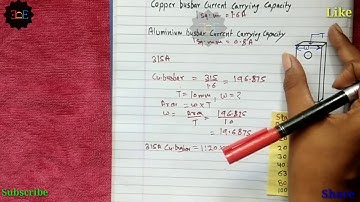 Copper busbar Current Carrying Capacity
1 sq. mm = 1.6A
Like
Aluminium busbar Current Carrying Capacity
1 sq. mm = 0.8A
315A
Cu. busbar = 315/1.6 = 196.875
T = 10mm, W = ?
Area = W x T
W = Area/T = 196.875/10
= 19.6875
315A Cu. busbar = 1120x
20
30
40
63
80
100
Subscribe
Share